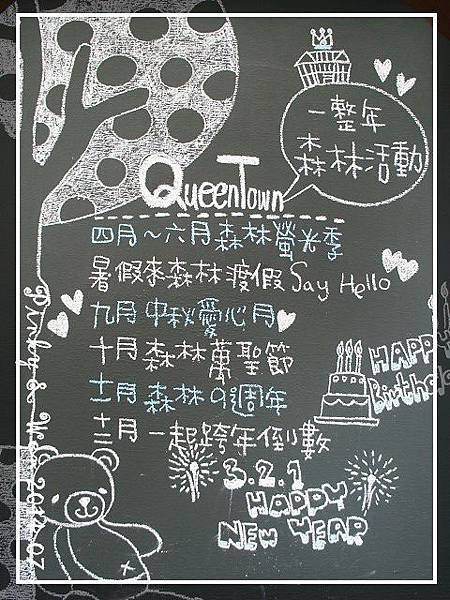 一整年
森林活動
QueenTown
四月～六月森林螢光季
暑假來森林渡假 Say Hello
九月中秋愛心月
十月森林萬聖節
十一月森林9週年
十二月一起跨年倒數
HAPPY
Birthday
3.2.1
HAPPY
NEW YEAR